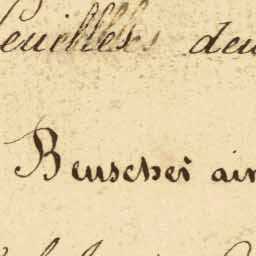 feuilles deu
Beuscher ain